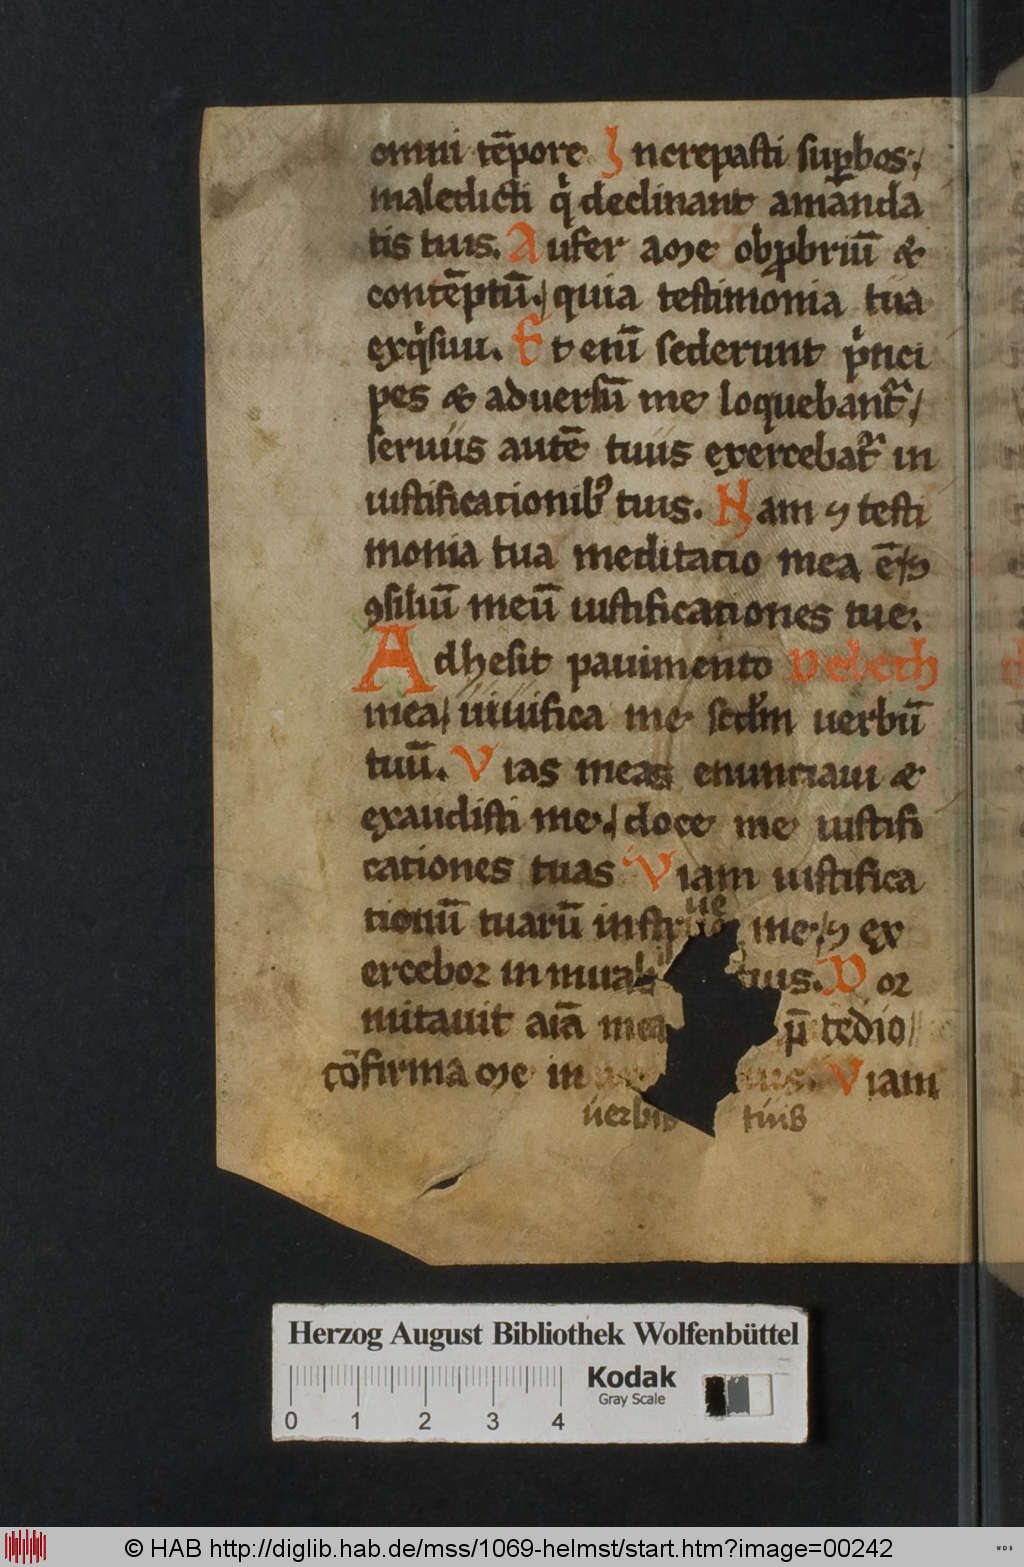 omni te̅pore Increpasti suꝑbos
maledicti qͥ declinant a manda
tis tuis. Aufer a me obꝓbriu̅ &
conte̅ptu̅. quia testimonia tua
exqͥsiui. Et eni̅ sederunt pͥnci
pes & aduersu̅ me loquebant᷑
seruus aute̅ tuus exercebat᷑ in
iustificationibꝰ tuis. Nam ⁊ testi
monia tua meditatio mea e̅ ⁊
ꝯsiliu̅ meu̅ iustificationes tue.
Adhesit pauimento
mea uiuifica me scd'm uerbu̅
tuu̅. Vias meas enunciaui &
exaudisti me. doce me iustifi
cationes tuas Viam iustifica
tionu̅ tuaru̅ instrue me ⁊ ex
ercebor in tuis. Dor
mitauit ai̅a mea p̅ tedio
co̅firma me in Viam
uerbis tuis
Herzog August Bibliothek Wolfenbüttel
Kodak
Gray Scale
0 1 2 3 4
© HAB http://diglib.hab.de/mss/1069-helmst/start.htm?image=00242